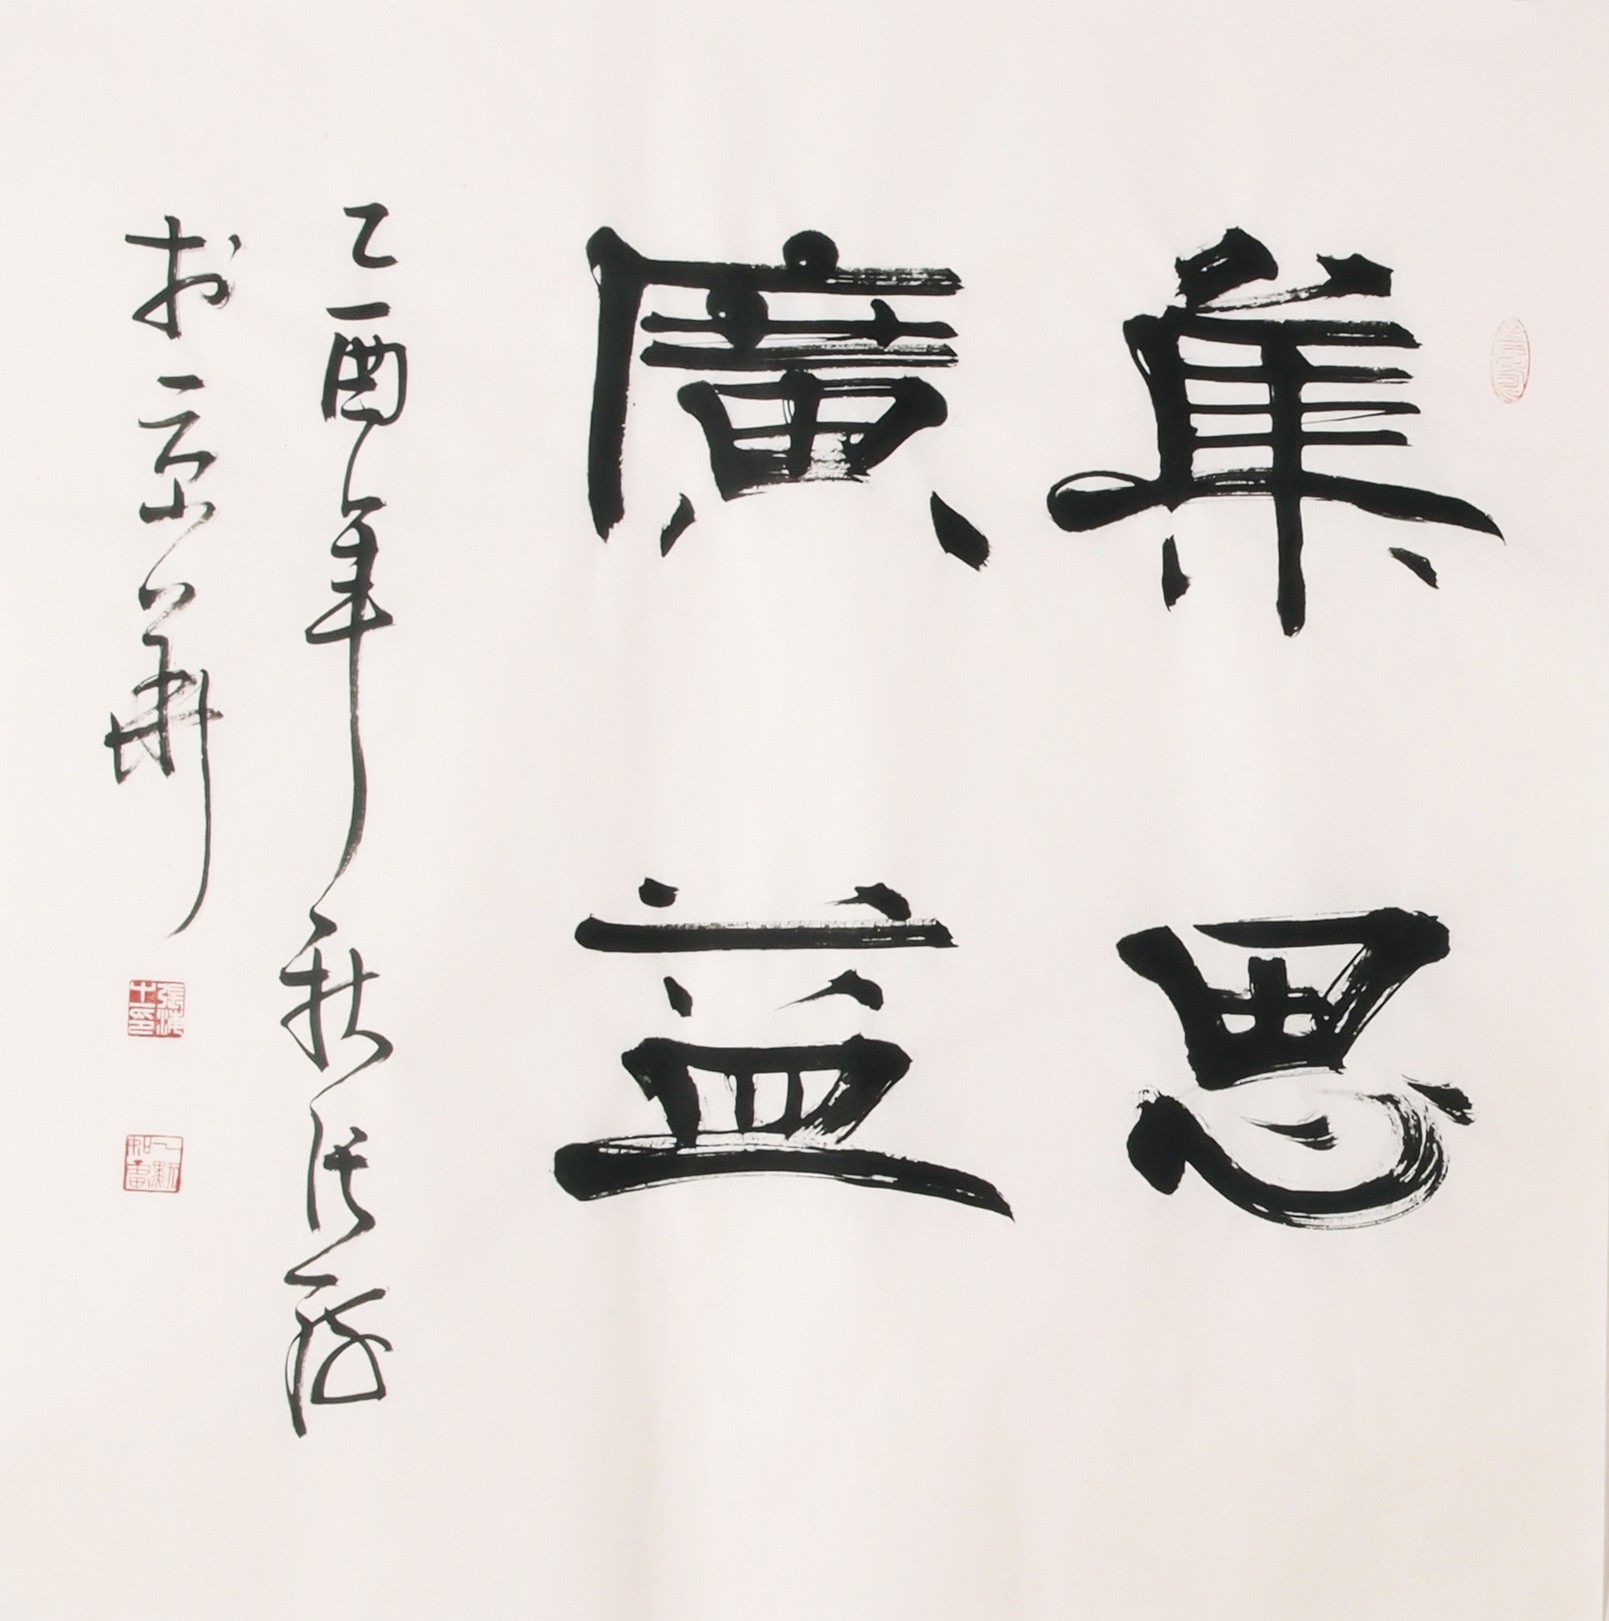 集思
廣益
乙酉年秋張海
於京華